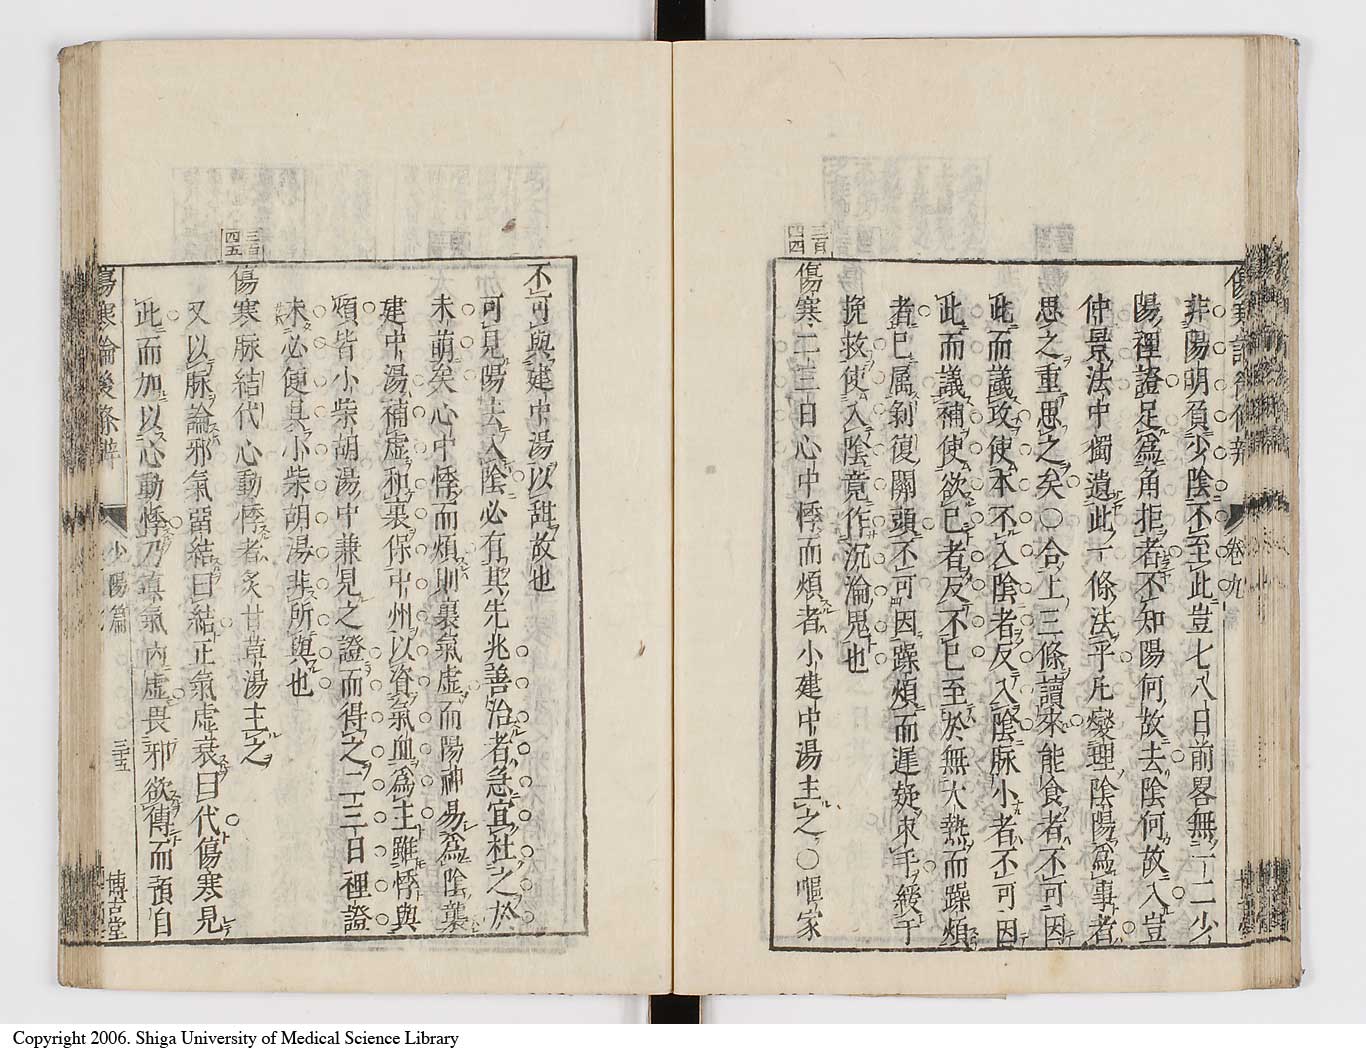 傷寒論後條辨 卷九
非陽明負少陰不至此豈七八日前畧無一二少
陽裡證足爲角拒者不知陽何故去陰何故入豈
仲景法中獨遺此一條法乎凡燮理陰陽爲事者
思之重思之矣○合上三條讀來能食者不可因
此而議攻使本不入陰者反入陰脉小者不可因
此而議補使欲已者反不已至於無大熱而躁煩
者已属剝復關頭不可因躁煩而遲疑束手緩于
挽救使入陰竟作沉淪鬼也
三百四四
傷寒二三日心中悸而煩者小建中湯主之○嘔家
不可與建中湯以甜故也
可見陽去入陰必有其先兆善治者急宜杜之於
未萌矣心中悸而煩則裏氣虛而陽神易爲陰襲
建中湯補虛和裏保中州以資氣血爲主雖悸與
煩皆小柴胡湯中兼見之證而得之二三日裡證
未必便具小柴胡湯非所與也
三百四五
傷寒脉結代心動悸者炙甘草湯主之
又以脉論邪氣畱結曰結正氣虛衰曰代傷寒見
此而加以心動悸乃眞氣內虛畏邪欲傳而預自
傷寒論後條辨 少陽篇 三十五 博古堂
Copyright 2006. Shiga University of Medical Science Library